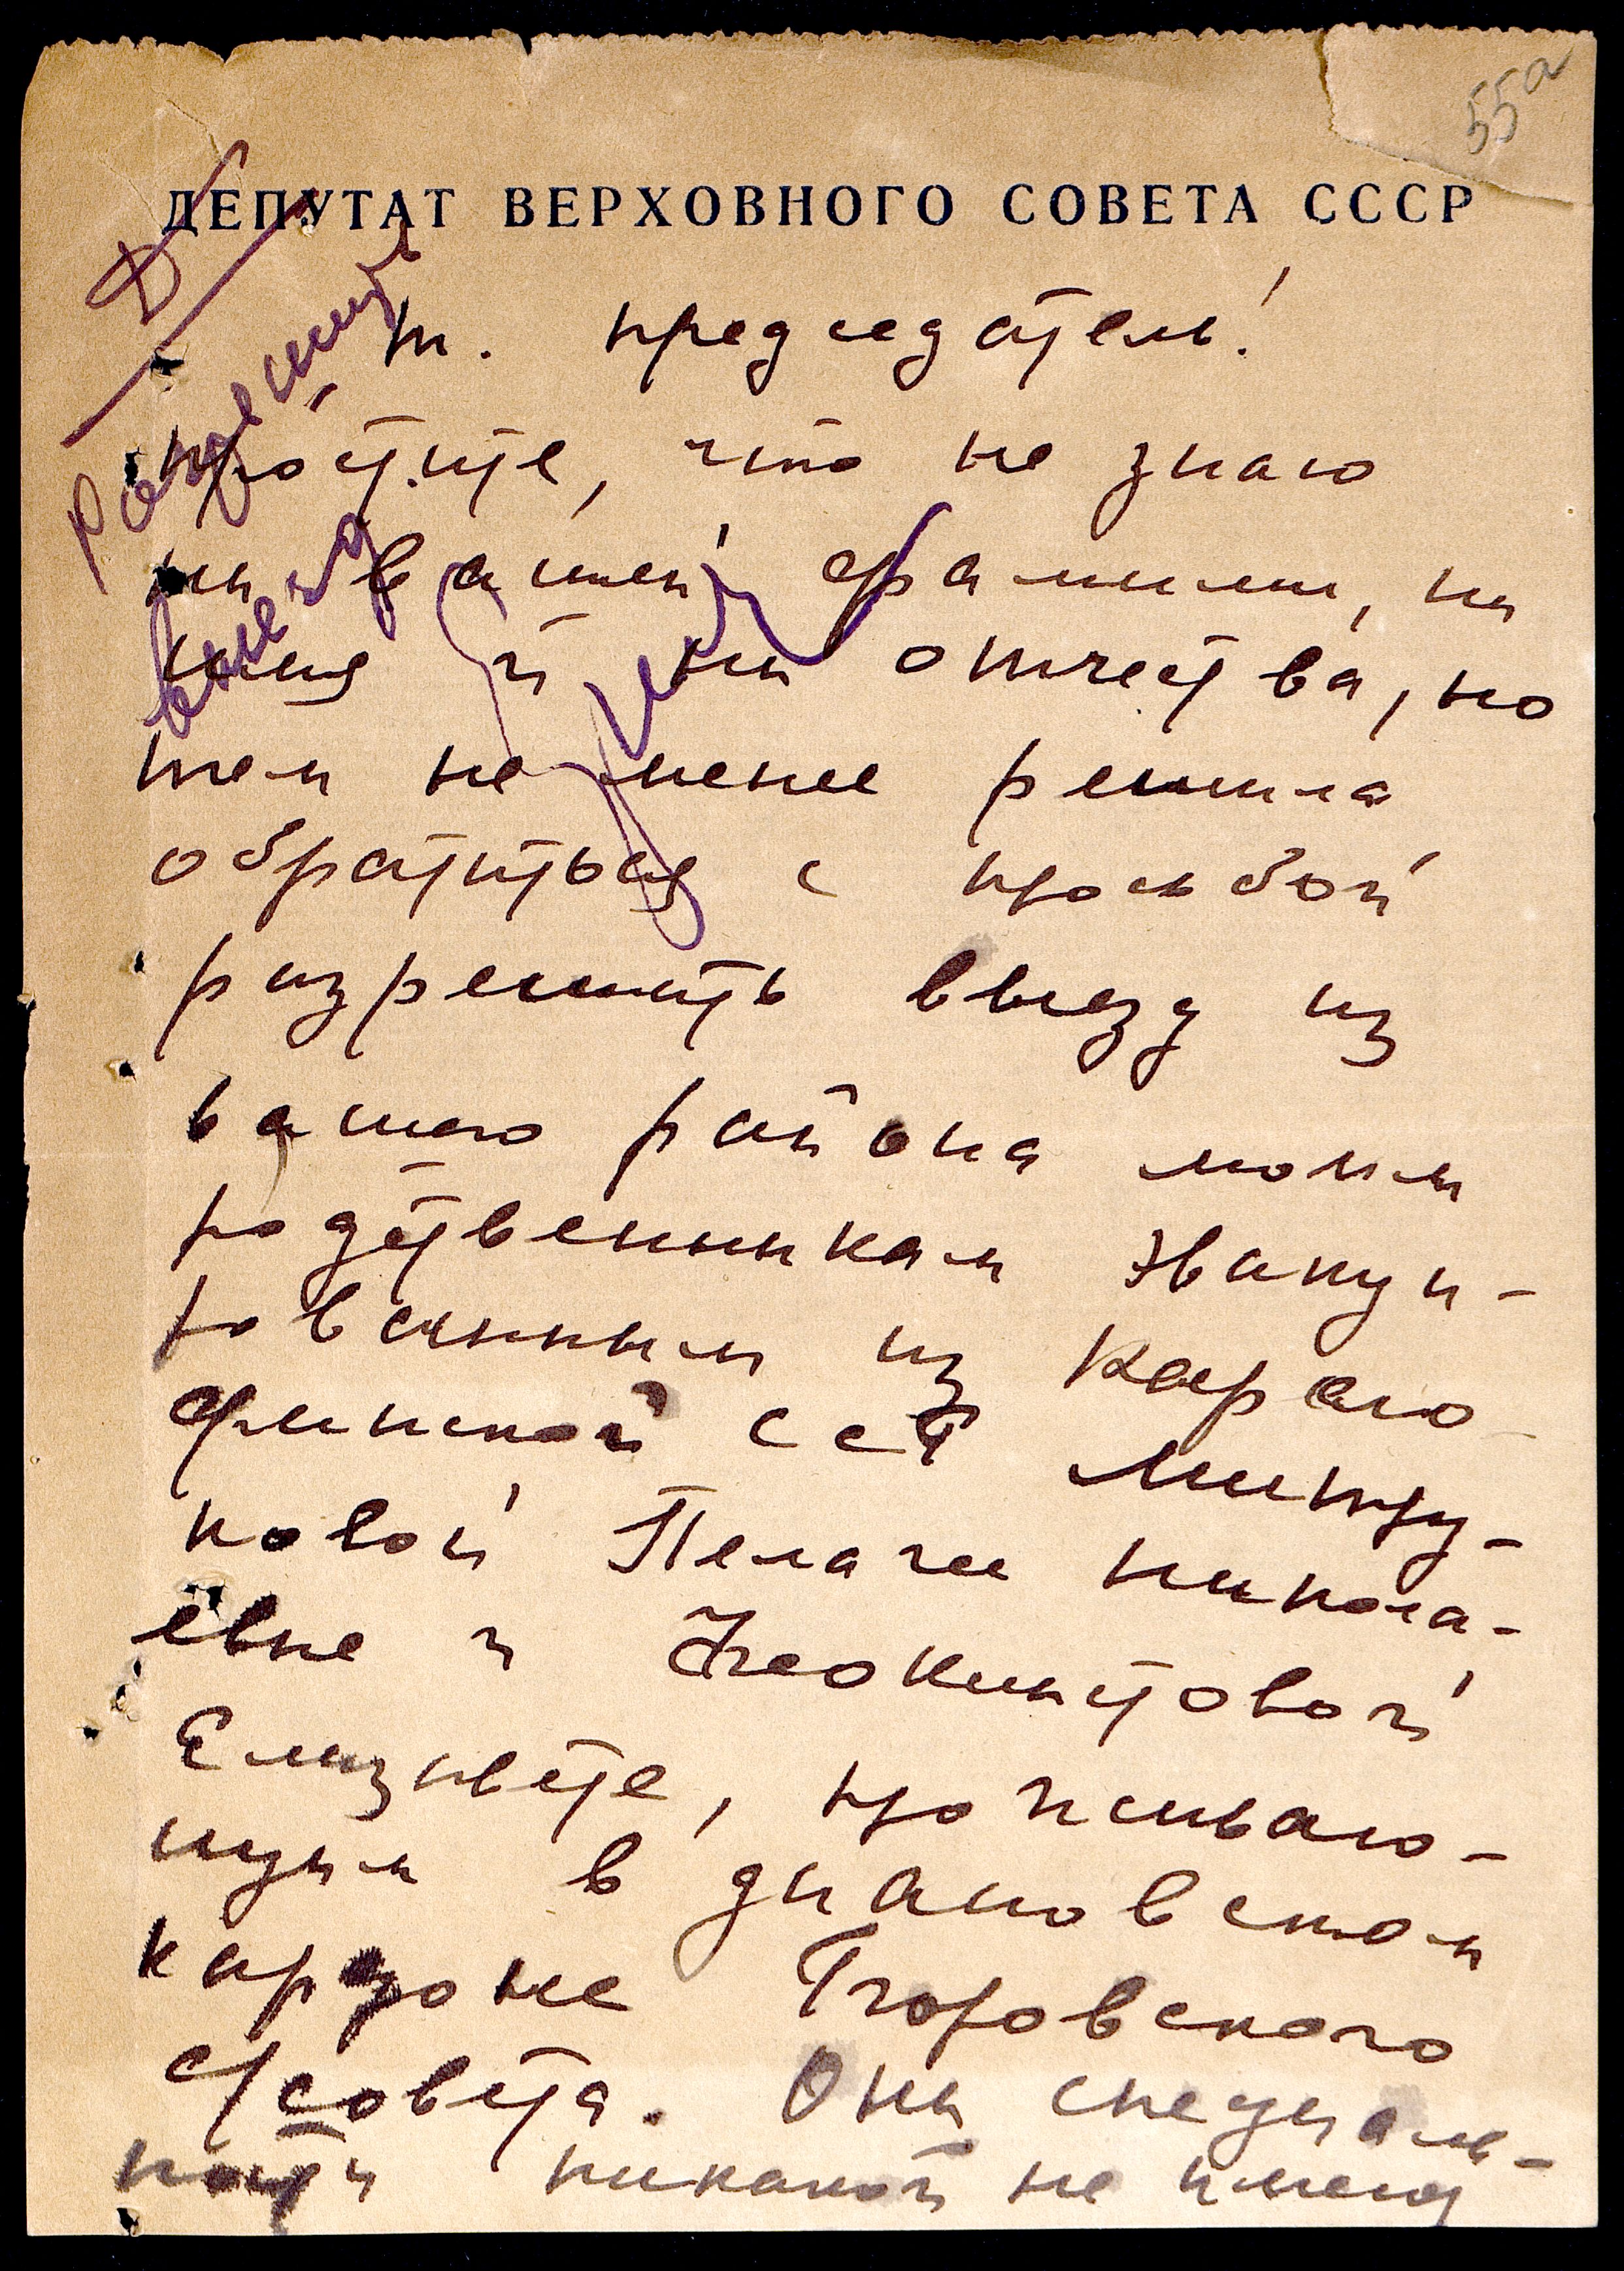 55а
ДЕПУТАТ ВЕРХОВНОГО СОВЕТА СССР
Разрешить
выезд
т. председатель!
простите, что не знаю
ни вашей фамилии, ни
имя и ни отчества, но
тем не менее решила
обратиться с просьбой
разрешить выезд из
вашего района моим
родственникам эвакуи-
рованным из Карело-
финской ССР
новой Пелагее Никола-
евне и
Елизавете, прожива-
ющим в
Глодовского
с/совета. Они специаль-
ности никакой не имеют